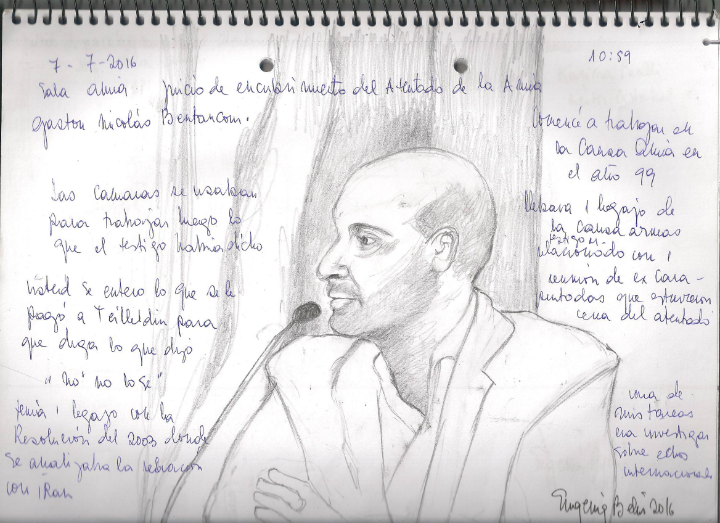 7 - 7-2016
10:59
Sala AMIA juicio de encubrimiento del Atentado de la AMIA
Gaston Nicolás Bentancour.
Las camaras se usaban
para trabajar luego lo
que el testigo habia dicho
Usted se entero lo que se le
pagó a Telleldin para
que diga lo que dijo
"No" no lo sé"
tenía 1 legajo con la
Resolución del 2003 donde
se analizaba la relación
con iRan
Comencé a trabajar en
la Causa AMIA en
el año 99
llevava 1 legajo de
la Causa armas
testigo
relacionado con 1
reunion de ex Cara-
pintadas que estuvieron
cerca del atentado
una de
mis tareas
era investigar
sobre
internacional
Eugenia Bekeris 2016